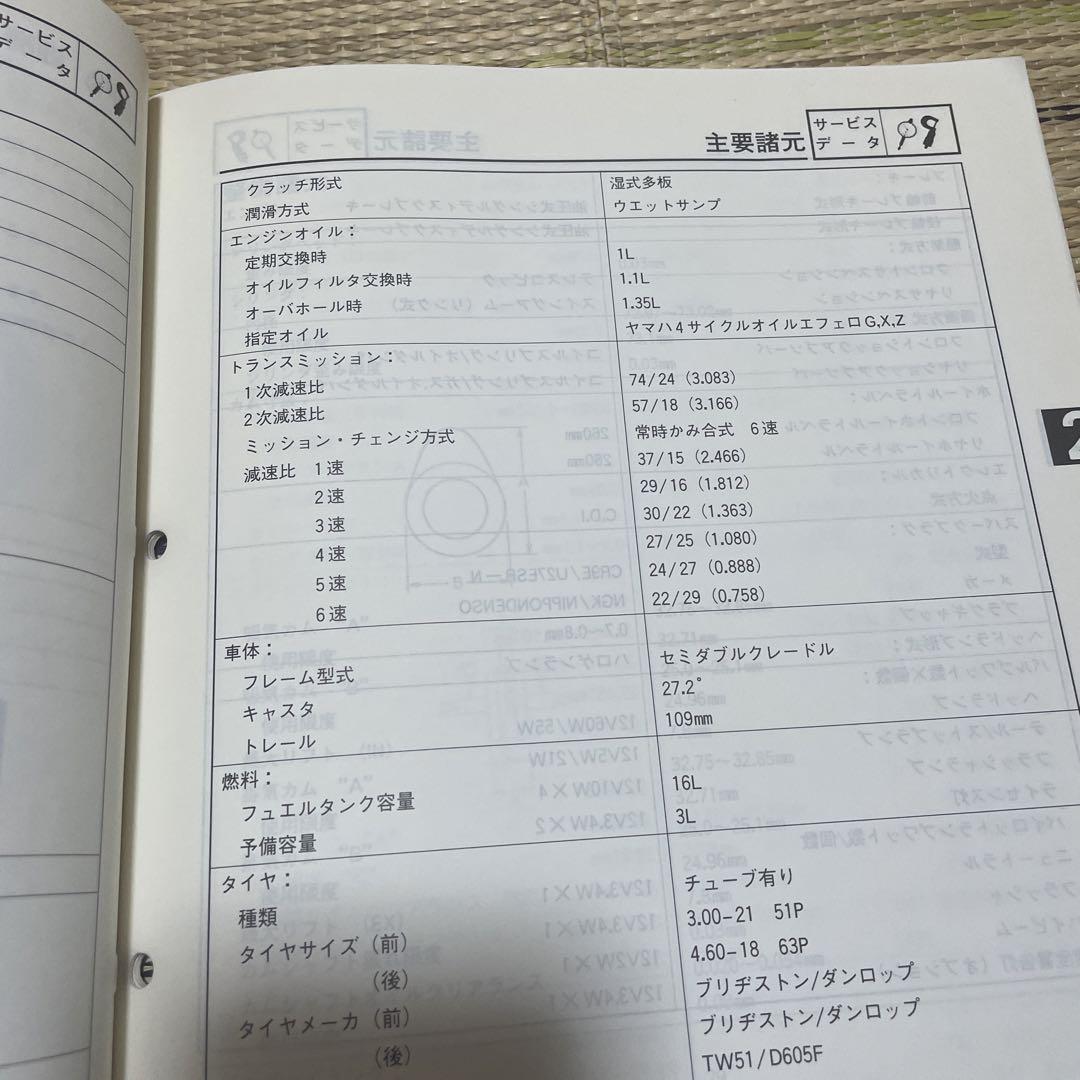 サービス
データ
主要諸元
サービス
データ
クラッチ形式 湿式多板
潤滑方式 ウエットサンプ
エンジンオイル：
定期交換時 1L
オイルフィルタ交換時 1.1L
オーバホール時 1.35L
指定オイル ヤマハ4サイクルオイルエフェロG,X,Z
トランスミッション：
1次減速比 74/24（3.083）
2次減速比 57/18（3.166）
ミッション・チェンジ方式 常時かみ合式 6速
減速比 1速 37/15（2.466）
2速 29/16（1.812）
3速 30/22（1.363）
4速 27/25（1.080）
5速 24/27（0.888）
6速 22/29（0.758）
車体：
フレーム型式 セミダブルクレードル
キャスタ 27.2°
トレール 109mm
燃料：
フュエルタンク容量 16L
予備容量 3L
タイヤ：
種類 チューブ有り
タイヤサイズ（前） 3.00-21 51P
（後） 4.60-18 63P
タイヤメーカ（前） ブリヂストン/ダンロップ
（後） ブリヂストン/ダンロップ
TW51/D605F
2